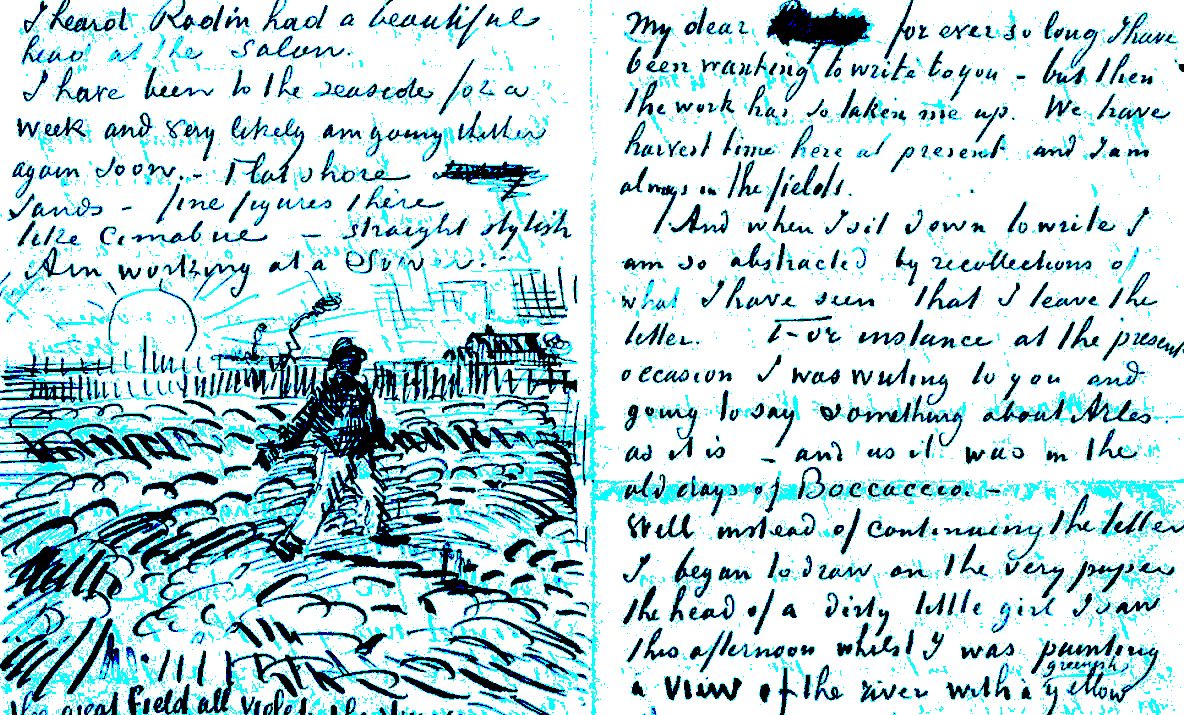 I heard Rodin had a beautiful
head at the Salon.
I have been to the seaside for a
week and very likely am going thither
again soon. - Flat shore
sands - fine figures there
like Cimabue - straight stylish
Am working at a Sower.
the great field all violet the
My dear for ever so long I have
been wanting to write to you - but then
the work has so taken me up. We have
harvest time here at present and I am
always in the fields.
And when I sit down to write I
am so abstracted by recollections of
what I have seen that I leave the
letter. For instance at the present
occasion I was writing to you and
going to say something about Arles
as it is - and as it was in the
old days of Boccaccio. -
Well instead of continuing the letter
I began to draw on the very paper
the head of a dirty little girl I saw
this afternoon whilst I was painting
a view of the river with a greenish yellow